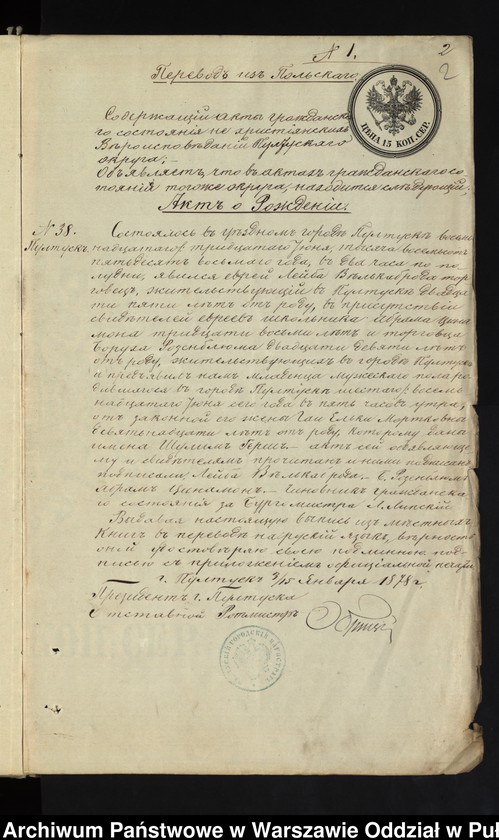 N 1.
2
2
Переводъ изъ Польскаго.
ЦѢНА 15 КОП. СЕР.
Содержащій акты гражданска-
го состоянія не христіанскихъ
Вѣроисповѣданій Пултускаго
округа,
Объявляетъ, что въ актахъ гражданскаго со-
тоянія тогоже округа, находится слѣдующій:
Актъ о Рожденіи.
N 38.
Пултускъ.
Состоялось въ уѣздномъ городѣ Пултускѣ восем-
надцатаго/тридцатаго Іюня, тысяча восемьсотъ
пятьдесятъ восьмаго года, въ два часа по по-
лудни, явился еврей Лейба Вѣлькаброда тор-
говецъ, жительствующій въ Пултускѣ двадца-
ти пяти лѣтъ отъ роду, въ присутствіи
свидѣтелей евреевъ школьника Абрама Цина-
мона тридцати восьми лѣтъ и торговца
Боруха Розенблюма двадцати девяти лѣтъ
отъ роду, жительствующихъ въ городѣ Пултускѣ
и предъявилъ намъ младенца мужескаго пола ро-
дившагося въ городѣ Пултускѣ шестаго/восем-
надцатаго Іюня сего года въ пять часовъ утра,
отъ законной его жены Гаи Ельки Мортковны
девятнадцати лѣтъ отъ роду, которому даны
имена Шулимъ Гершъ. – актъ сей объявляюще-
му и свидѣтелямъ прочитанъ и ними подписанъ
подписали Лейба Вѣлькаброда, – Б. Розенблюмъ
Абрамъ Цинамонъ. – Чиновникъ гражданска-
го состоянія за Бургомистра Липскій
Выдавая настоящую выпись изъ мѣстныхъ
Книгъ въ переводѣ на рускій языкъ, вѣрность
оной удостовѣряю своею подлинною под-
писью съ приложеніемъ официальной печати
г. Пултускъ 3/15 Января 1878 г.
Президентъ г. Пултуска
Отставной Ротмистръ
Archiwum Państwowe w Warszawie Oddział w Puł